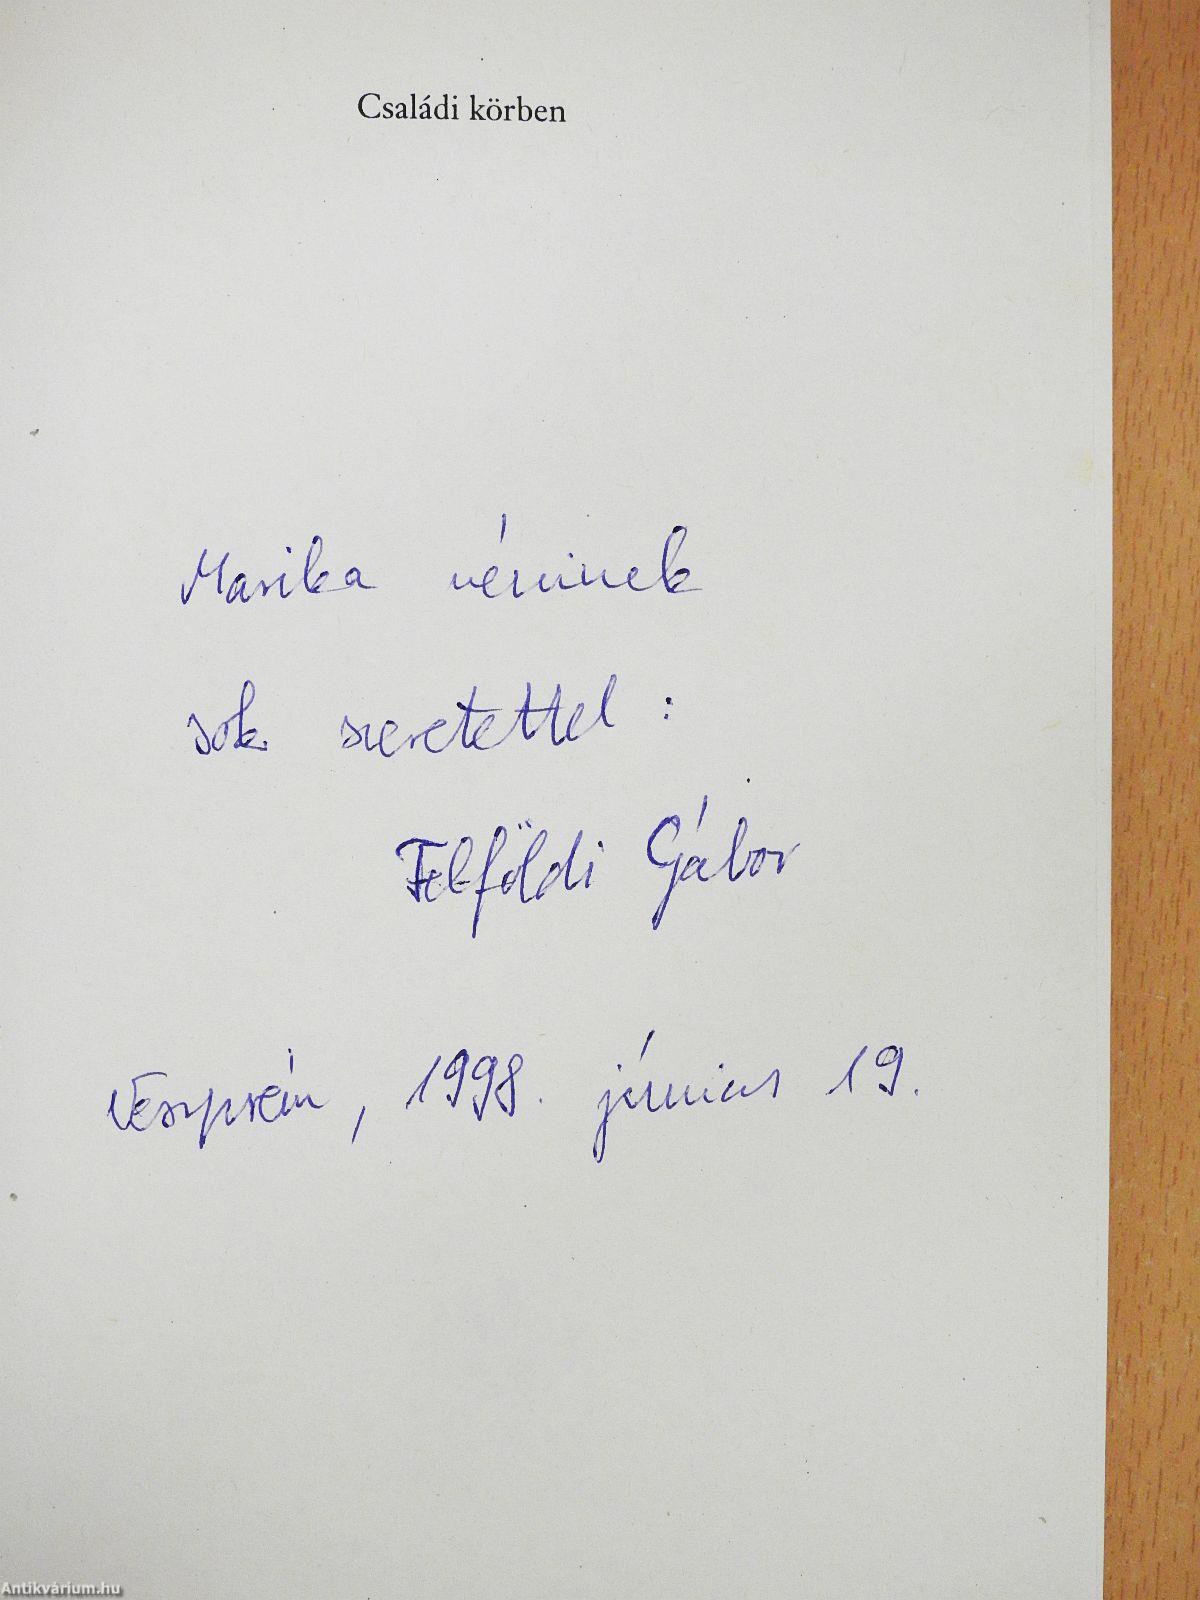 Családi körben
Marika néninek
sok szeretettel:
Felföldi Gábor
Veszprém, 1998. június 19.
Antikvárium.hu